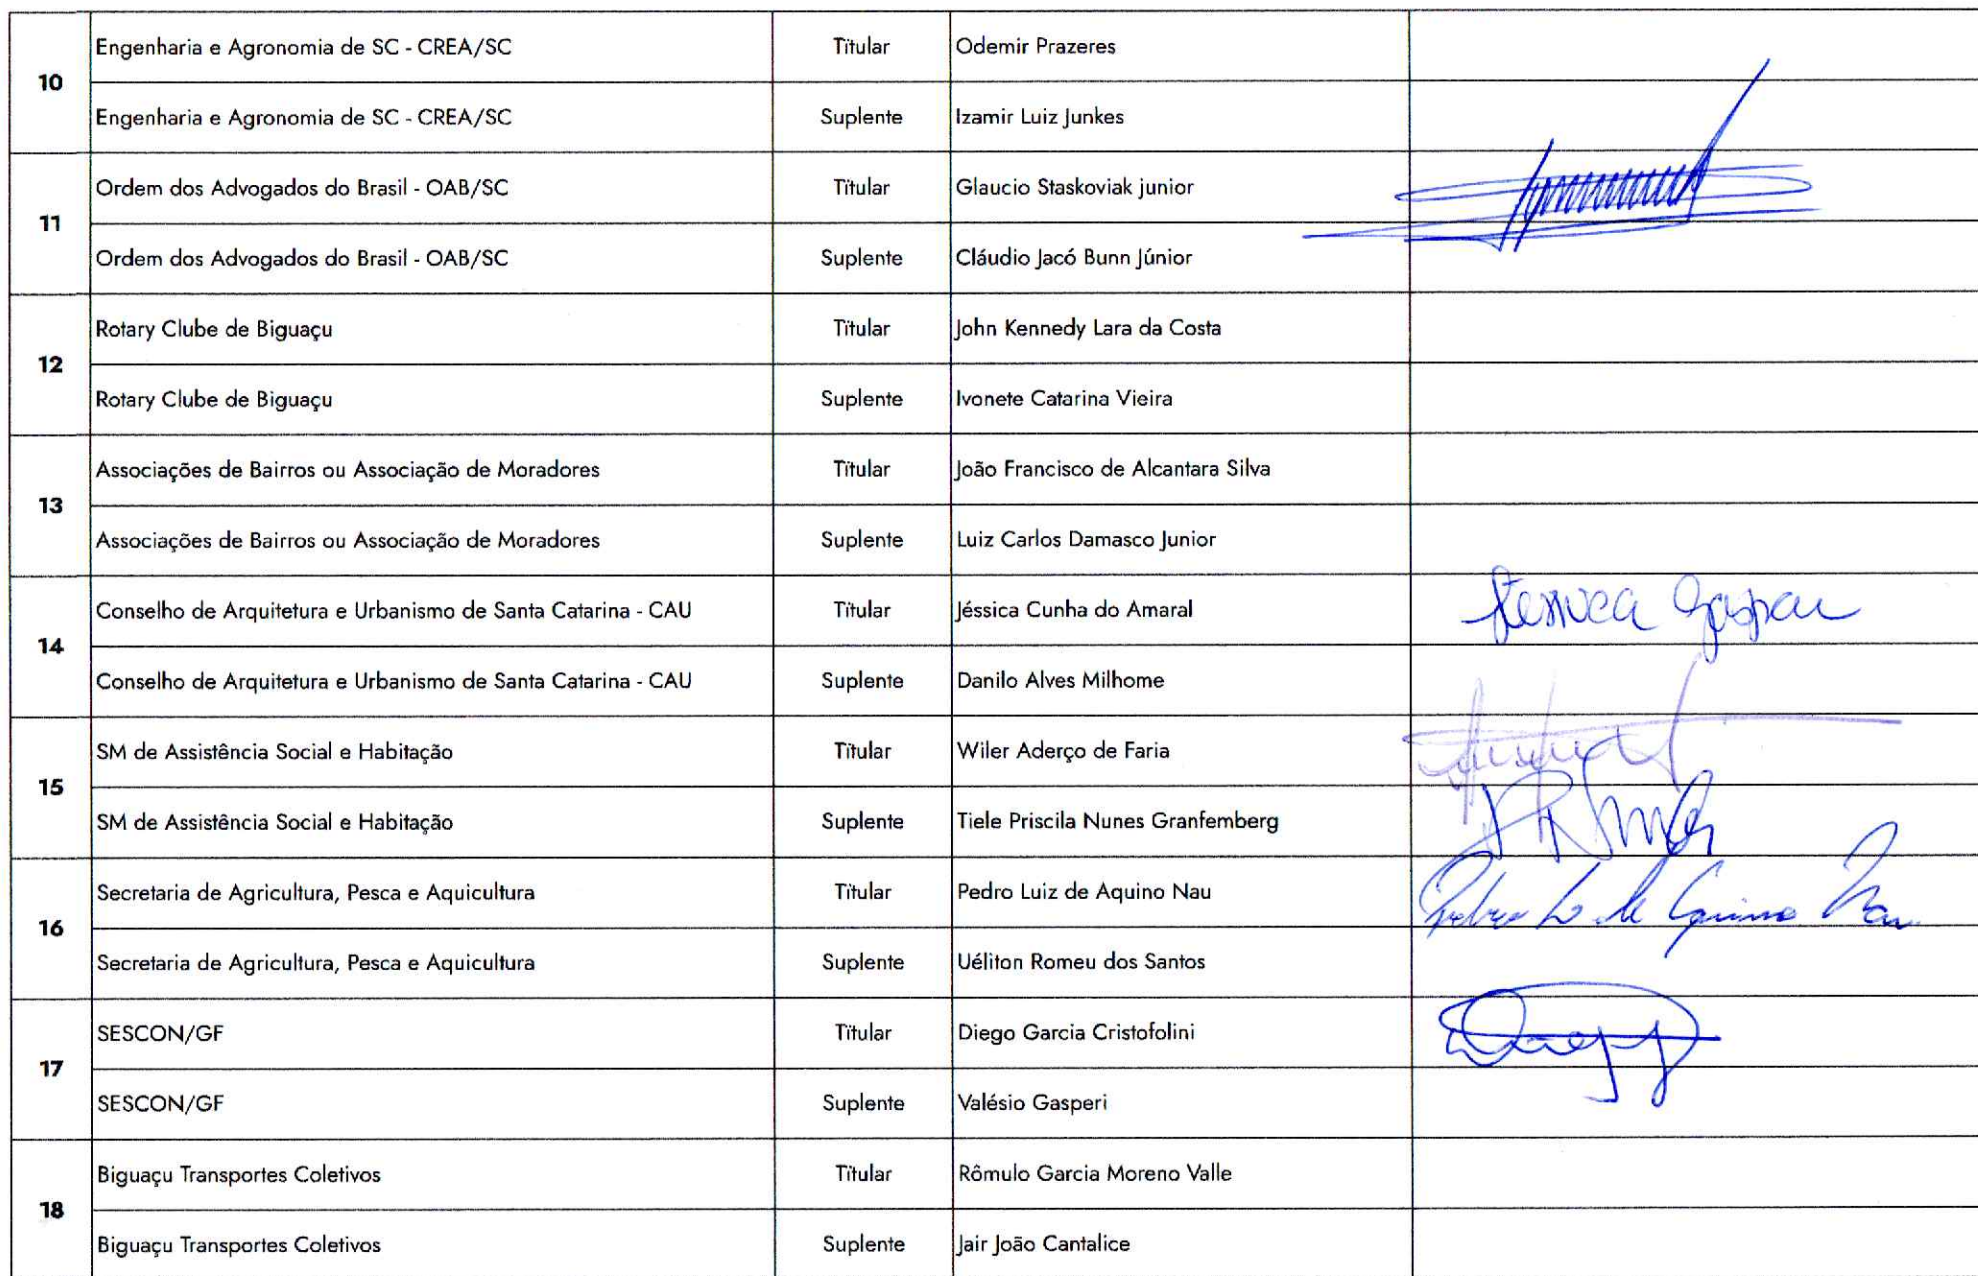 10
Engenharia e Agronomia de SC - CREA/SC Titular Odemir Prazeres
Engenharia e Agronomia de SC - CREA/SC Suplente Izamir Luiz Junkes
11
Ordem dos Advogados do Brasil - OAB/SC Titular Glaucio Staskoviak junior
Ordem dos Advogados do Brasil - OAB/SC Suplente Cláudio Jacó Bunn Júnior
12
Rotary Clube de Biguaçu Titular John Kennedy Lara da Costa
Rotary Clube de Biguaçu Suplente Ivonete Catarina Vieira
13
Associações de Bairros ou Associação de Moradores Titular João Francisco de Alcantara Silva
Associações de Bairros ou Associação de Moradores Suplente Luiz Carlos Damasco Junior
14
Conselho de Arquitetura e Urbanismo de Santa Catarina - CAU Titular Jéssica Cunha do Amaral Jessica Gaspar
Conselho de Arquitetura e Urbanismo de Santa Catarina - CAU Suplente Danilo Alves Milhome
15
SM de Assistência Social e Habitação Titular Wiler Aderço de Faria
SM de Assistência Social e Habitação Suplente Tiele Priscila Nunes Granfemberg
16
Secretaria de Agricultura, Pesca e Aquicultura Titular Pedro Luiz de Aquino Nau Pedro L de Aquino Nau
Secretaria de Agricultura, Pesca e Aquicultura Suplente Uéliton Romeu dos Santos
17
SESCON/GF Titular Diego Garcia Cristofolini
SESCON/GF Suplente Valésio Gasperi
18
Biguaçu Transportes Coletivos Titular Rômulo Garcia Moreno Valle
Biguaçu Transportes Coletivos Suplente Jair João Cantalice